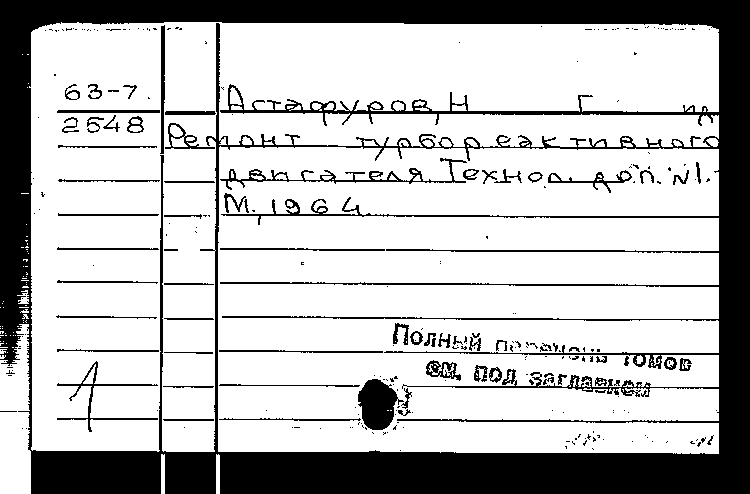 63-7. Астафуров, Н Г и д
2648 Ремонт турбореактивного
двигателя. Технол. доп. №1.-
М., 1964.
Полный перечень томов
см. под заглавием
1